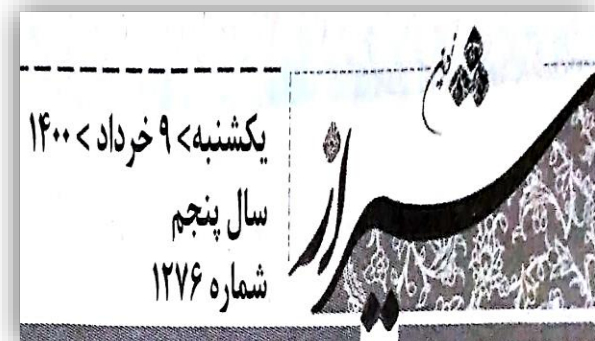 شیراز
یکشنبه> ۹ خرداد> ۱۴۰۰
سال پنجم
شماره ۱۲۷۶